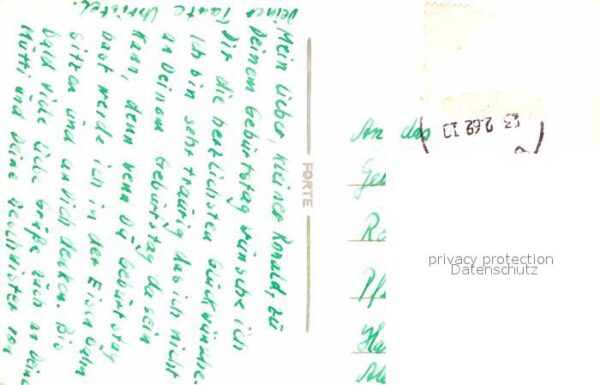 Mein lieber, kleiner Ronald, zu
Deinem Geburtstag wünsche ich
Dir die herzlichsten Glückwünsche.
Ich bin sehr traurig das ich nicht
an Deinem Geburtstag da sein
kann, denn wenn Du Geburtstag
hast werde ich in der Eisenbahn
sitzen und an Dich denken. Bis
bald viele liebe Grüße auch an Deine
Mutti und Deine Geschwister von
Deiner Tante Christel.
FORTE
An das
23.2.69.13
privacy protection
Datenschutz